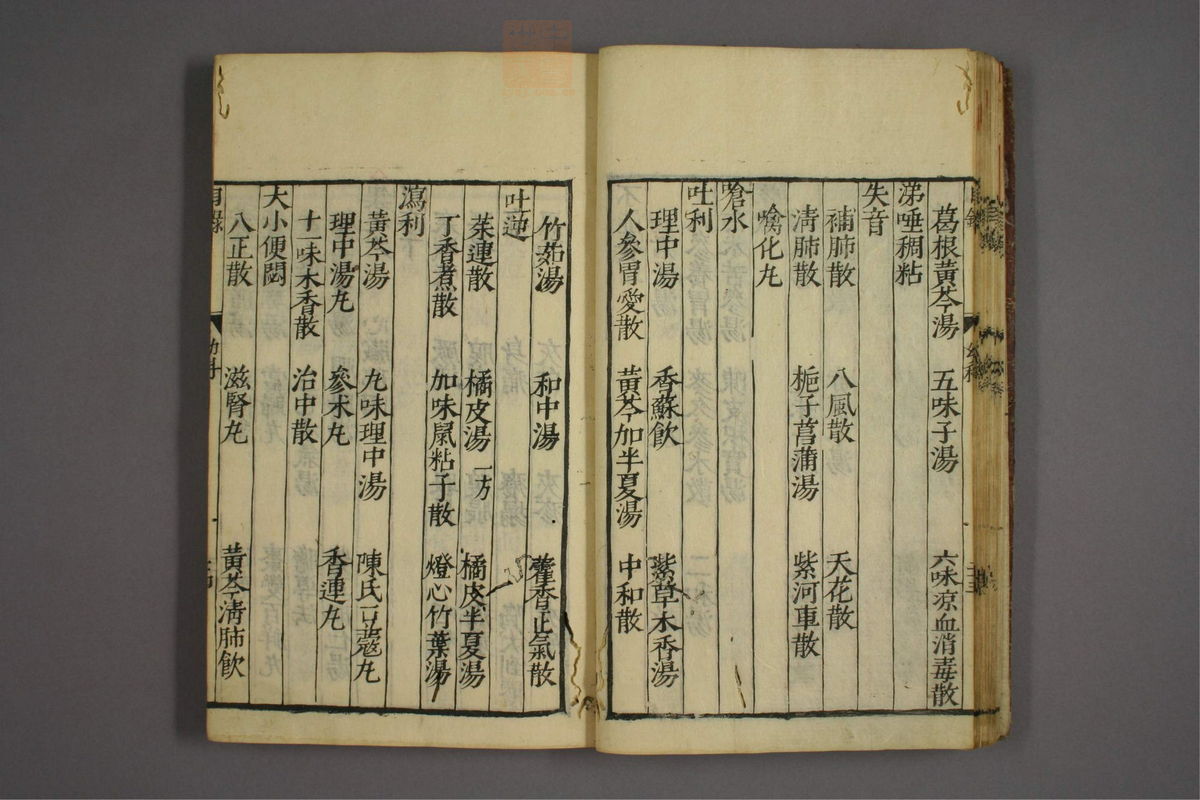 葛根黃芩湯 五味子湯 六味凉血消毒散
涕唾稠粘
失音
補肺散 八風散 天花散
清肺散 梔子菖蒲湯 紫河車散
噙化丸
嗆水
吐利
理中湯 香蘇飲 紫草木香湯
人參胃愛散 黃芩加半夏湯 中和散
竹茹湯 和中湯 藿香正氣散
吐逆
茱連散 橘皮湯一方 橘皮半夏湯
丁香煮散 加味鼠粘子散 燈心竹葉湯
瀉利
黃芩湯 九味理中湯 陳氏豆蔻丸
理中湯丸 參朮丸 香連丸
十一味木香散 治中散
大小便閟
八正散 滋腎丸 黃芩清肺飲
目錄